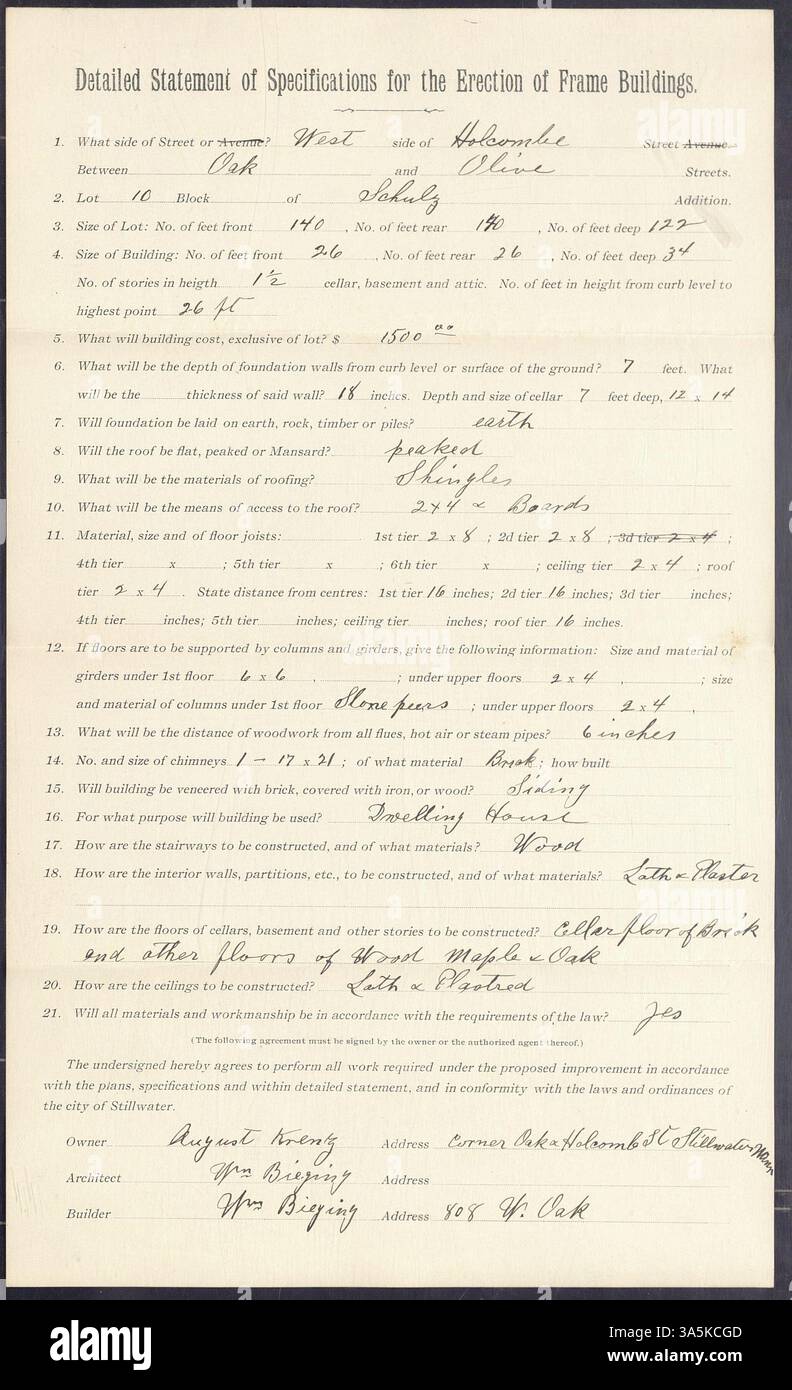 Detailed Statement of Specifications for the Erection of Frame Buildings.
1. What side of Street or Avenue? West side of Holcombe Street Avenue.
Between Oak and Olive Streets.
2. Lot 10 Block of Schulz Addition.
3. Size of Lot: No. of feet front 140, No. of feet rear 140, No. of feet deep 122
4. Size of Building: No. of feet front 26, No. of feet rear 26, No. of feet deep 34
No. of stories in heigth 1½ cellar, basement and attic. No. of feet in height from curb level to
highest point 26 ft
5. What will building cost, exclusive of lot? $ 1500 00
6. What will be the depth of foundation walls from curb level or surface of the ground? 7 feet. What
will be the thickness of said wall? 18 inches. Depth and size of cellar 7 feet deep, 12 x 14
7. Will foundation be laid on earth, rock, timber or piles? earth
8. Will the roof be flat, peaked or Mansard? peaked
9. What will be the materials of roofing? Shingles
10. What will be the means of access to the roof? 2x4 & Boards
11. Material, size and of floor joists: 1st tier 2 x 8 ; 2d tier 2 x 8 ; 3d tier 2 x 4 ;
4th tier x ; 5th tier x ; 6th tier x ; ceiling tier 2 x 4 ; roof
tier 2 x 4 . State distance from centres: 1st tier 16 inches; 2d tier 16 inches; 3d tier inches;
4th tier inches; 5th tier inches; ceiling tier inches; roof tier 16 inches.
12. If floors are to be supported by columns and girders, give the following information: Size and material of
girders under 1st floor 6 x 6 , ; under upper floors 2 x 4 , ; size
and material of columns under 1st floor Stone peers ; under upper floors 2 x 4 ,
13. What will be the distance of woodwork from all flues, hot air or steam pipes? 6 inches
14. No. and size of chimneys 1 - 17 x 21 ; of what material Brick ; how built
15. Will building be veneered with brick, covered with iron, or wood? Siding
16. For what purpose will building be used? Dwelling House
17. How are the stairways to be constructed, and of what materials? Wood
18. How are the interior walls, partitions, etc., to be constructed, and of what materials? Lath & Plaster
19. How are the floors of cellars, basement and other stories to be constructed? Celler floor of Brick
and other floors of Wood Maple & Oak
20. How are the ceilings to be constructed? Lath & Plastred
21. Will all materials and workmanship be in accordance with the requirements of the law? yes
(The following agreement must be signed by the owner or the authorized agent thereof.)
The undersigned hereby agrees to perform all work required under the proposed improvement in accordance
with the plans, specifications and within detailed statement, and in conformity with the laws and ordinances of
the city of Stillwater.
Owner August Krentz Address Corner Oak & Holcomb St Stillwater Minn
Architect Wm Bieging Address
Builder Wm Bieging Address 808 W. Oak
alamy
Image ID: 3A5KCGD
www.alamy.com